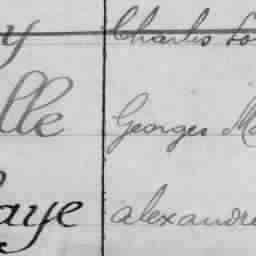 y Charles Lo
lle Georges Ma
aye alexandre